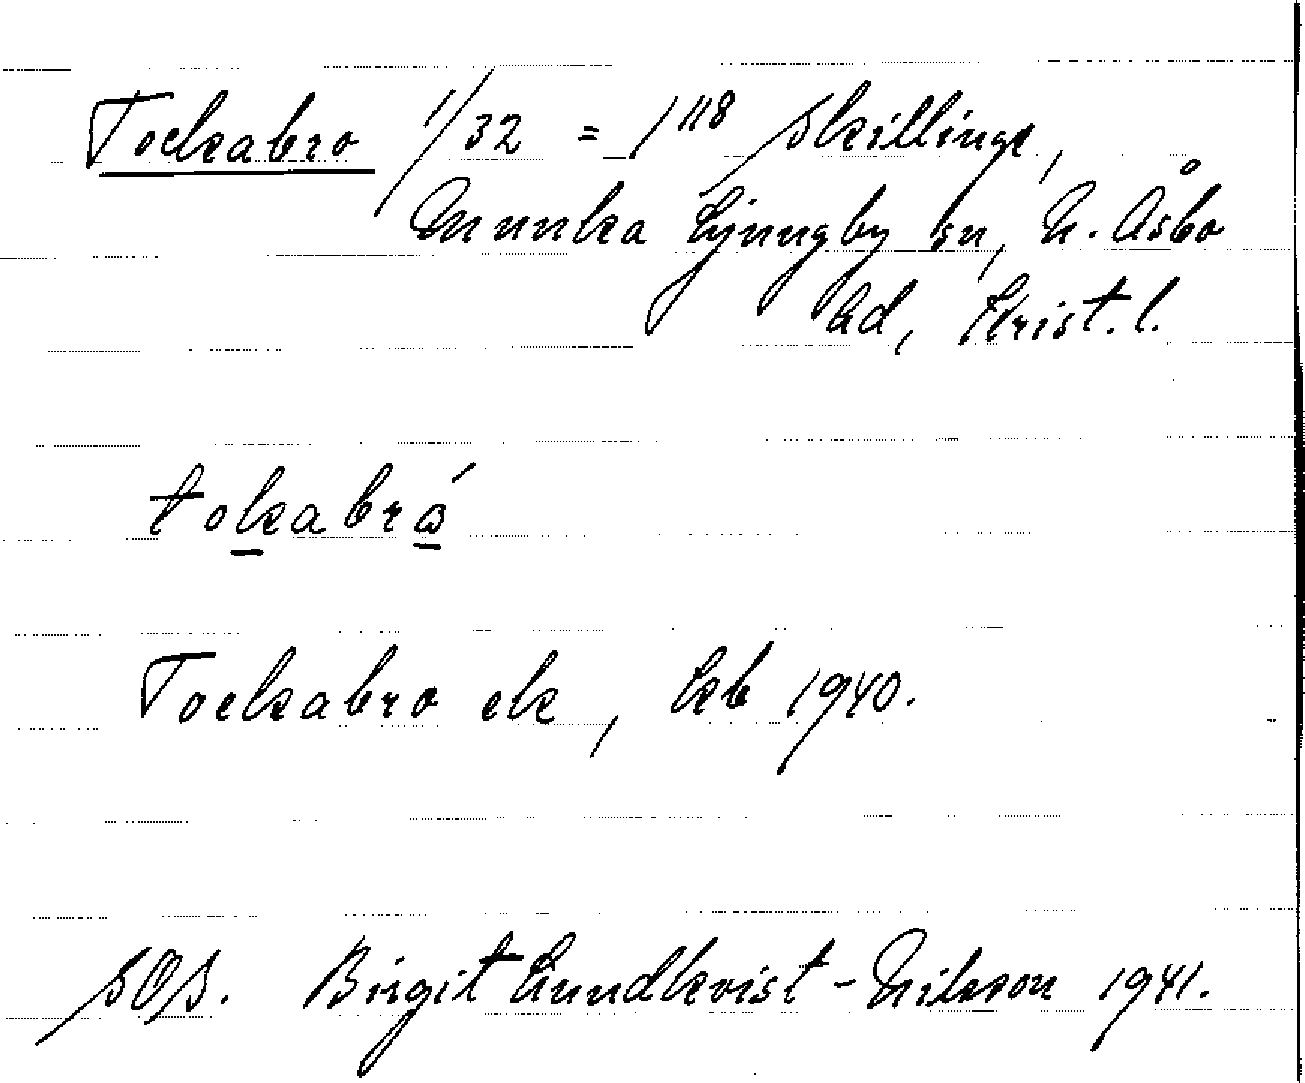 Tockabro 1/32 = 1¹¹⁸ Skillinge,
Munka Ljungby sn, N. Åsbo
hd, Krist. l.
tokabró
Tockabro ek, kb 1940.
SOS. Birgit Lundkvist-Nilsson 1941.